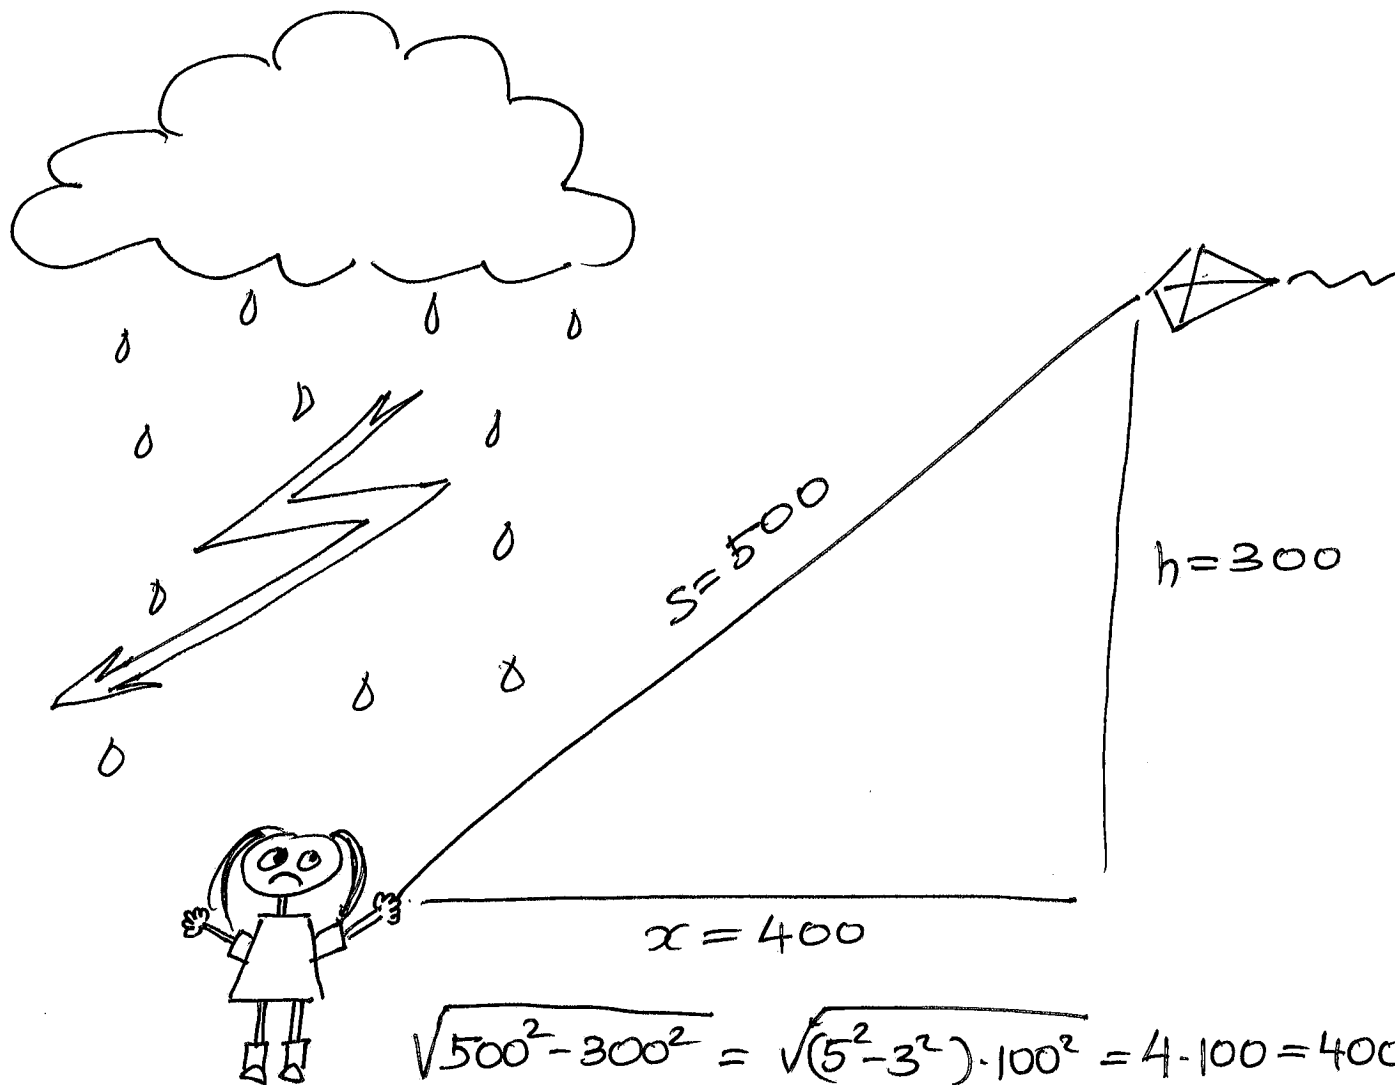 s=500
h=300
x=400
√500²-300² = √(5²-3²)·100² = 4·100 = 400